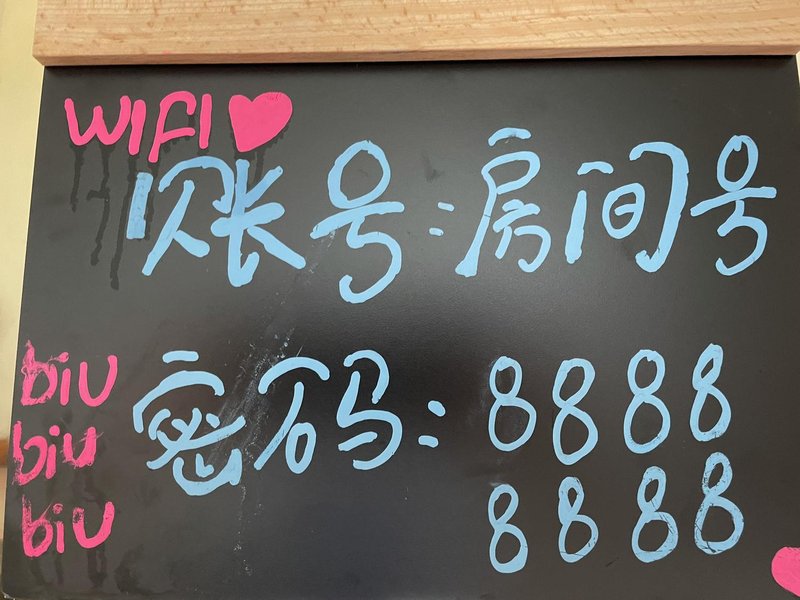 WIFI
账号:房间号
biu 密码:8888
biu
biu 8888